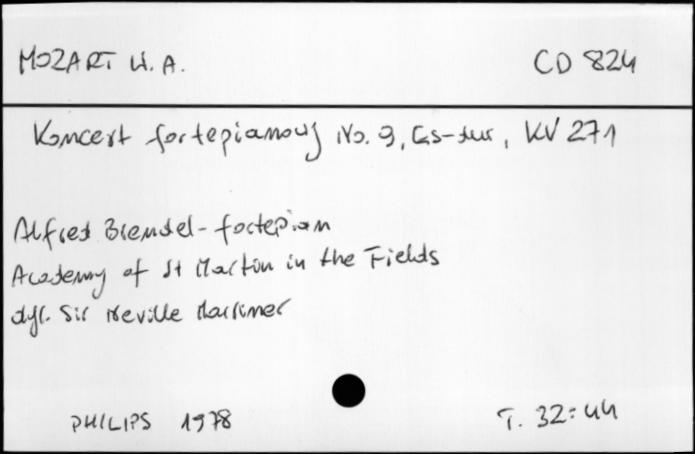 MOZART W. A. CD 824
Koncert fortepianowy No. 9, Es-dur, KV 271
Alfred Brendel - fortepian
Academy of St Martin in the Fields
dyr. Sir Neville Marriner
PHILIPS 1978 T. 32:44